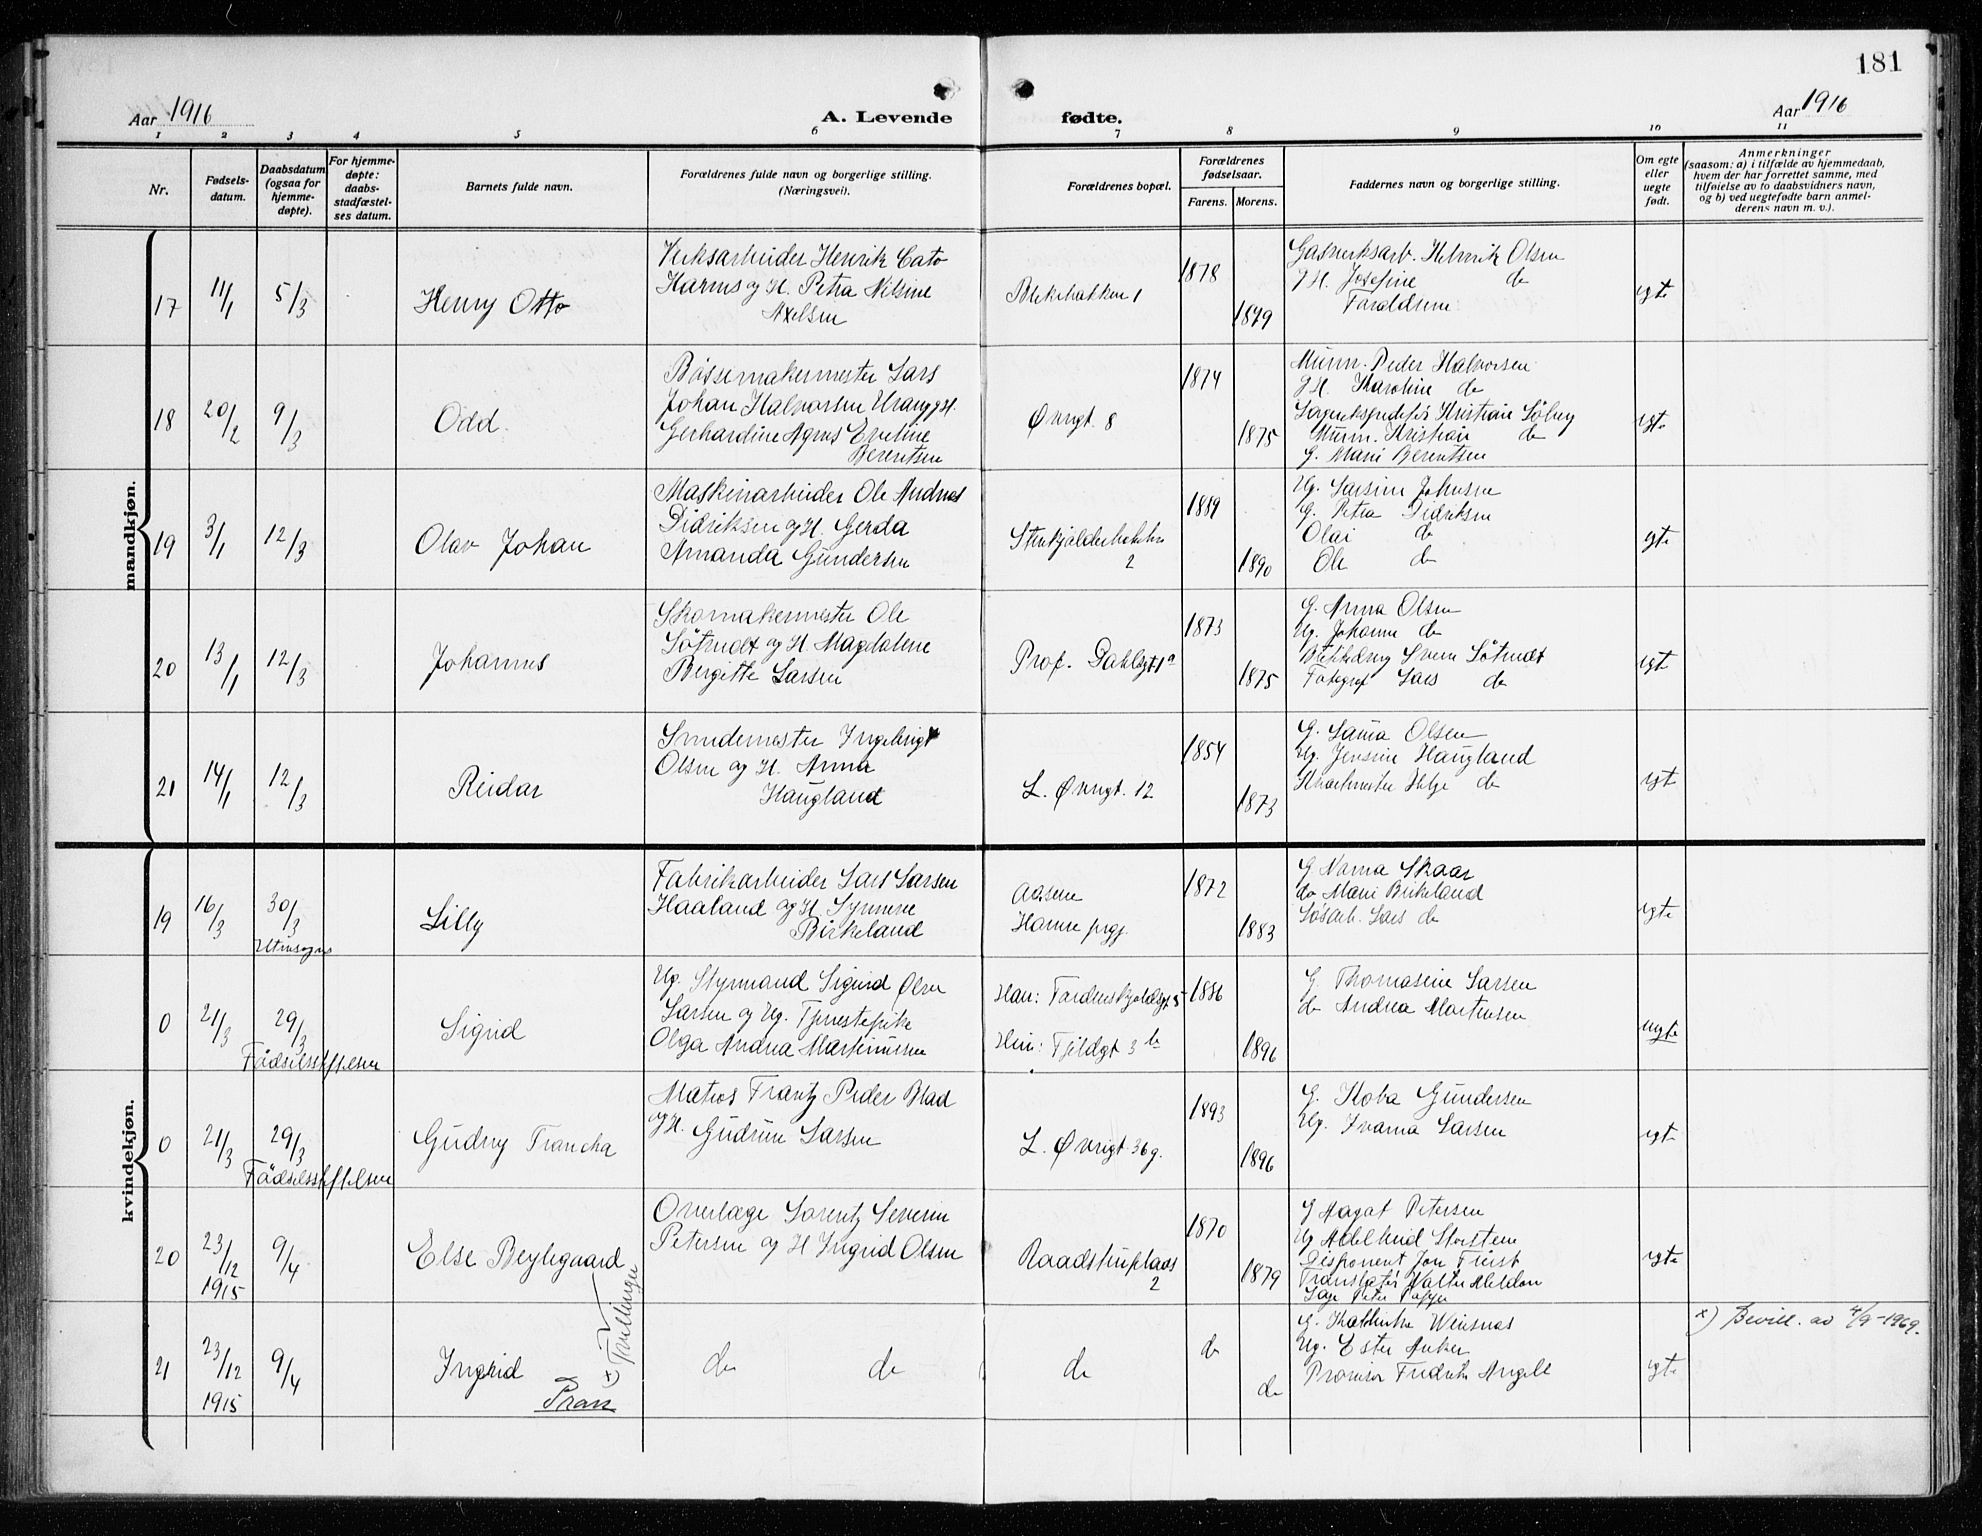 181
Aar 1916
A. Levende
fødte.
Aar 1916
1 2 3 4 5 6 7 8 9 10 11
Nr.
Fødsels-
datum.
Daabsdatum
(ogsaa for
hjemme-
døpte).
For hjemme-
døpte:
daabs-
stadfæstel-
ses datum.
Barnets fulde navn.
Forældrenes fulde navn og borgerlige stilling.
(Næringsvei).
Forældrenes bopæl.
Forældrenes
fødselsaar.
Farens. Morens.
Faddernes navn og borgerlige stilling.
Om egte
eller
uegte
født.
Anmerkninger
(saasom: a) i tilfælde av hjemmedaab,
hvem der har forrettet samme, med
tilføielse av to daabsvidners navn,
og b) ved uegtefødte barn anmel-
derens navn m. v.).
mandkjøn.
17 11/1 5/3 Henry Otto
Verksarbeider Henrik Cato
Harms og H. Petra Nilsine
Axelsen
Blekebakken 1
1878
1879
Gasverksarb. Henrik Olsen
g H. Josefine do
Forældrene
egte
18 20/2 9/3 Odd
Bössemakermester Lars
Johan Halvorsen Urang g H.
Gerhardine Agnes Eveline
Berentsen
Øvregt. 8
1874
1875
Murm. Peder Halvorsen
g H. Karoline do
Kristian Söberg
Murm. Kristian do
G. Marie Berentsen
egte
19 3/1 12/3 Olav Johan
Maskinarbeider Ole Andreas
Didriksen og H. Gerda
Amanda Gundersen
Stenkjelderbakken
2
1889
1890
Ug. Larsine Johnsen
G. Petra Didriksen
Olai do
Ole do
egte
20 13/1 12/3 Johannes
Skomakermester Ole
Sötvedt og H. Magdalene
Bergitte Larsen
Prof. Dahlsgt 1a
1873
1875
G. Anna Olsen
Ug. Johanne do
Svein Sötvedt
Fotograf Lars do
egte
21 14/1 12/3 Reidar
Smedemester Ingebrigt
Olsen og H. Anna
Haugland
L. Øvregt. 12
1854
1873
G. Laura Olsen
Ug. Jensine Haugland
Helge do
egt
kvindekjøn.
19 16/3 30/3 Lilly
Utensogns
Fabrikarbeider Lars Larsen
Haaland og H. Synneve
Birkeland
Aasene
Hamre prgj.
1872
1883
G Norma Skaar
do Marie Birkeland
Løsarb. Lars do
egte
0 21/3 29/3 Sigrid
Födselsstiftelsen
Ug. Styrmand Sigurd Olsen
Larsen og Ug. Tjenestepike
Olga Andrea Martinussen
Han: Tordenskjoldsgt. 5
Hun: Fjeldgt 3 b
1886
1896
G. Thomasine Larsen
do Andrea Mortensen
uegte
0 21/3 29/3 Gudny Francka
Födselsstiftelsen
Matros Frantz Peder Blad
og H. Gudrun Larsen
L. Øvregt 36 g.
1893
1896
G. Koba Gundersen
Ug. Ivarna Larsen
egte
20 23/12 1915 9/4 Else Beylegaard
Overlæge Lorentz Severin
Petersen og H Ingrid Olsen
Raadstuplads
2
1870
1879
G Magat Petersen
Ug Adelheid Storsten
Disponent Jon Friist
Translatör
Læge Peter
egte
21 23/12 1915 9/4 Ingrid
Tvillinger
x)
do do
do
do
do
G. Kathinka Weisnas
Ug. Ester Anker
Provisor Fredrik Angell
egte
x) Bevill. av 4/9-1969.